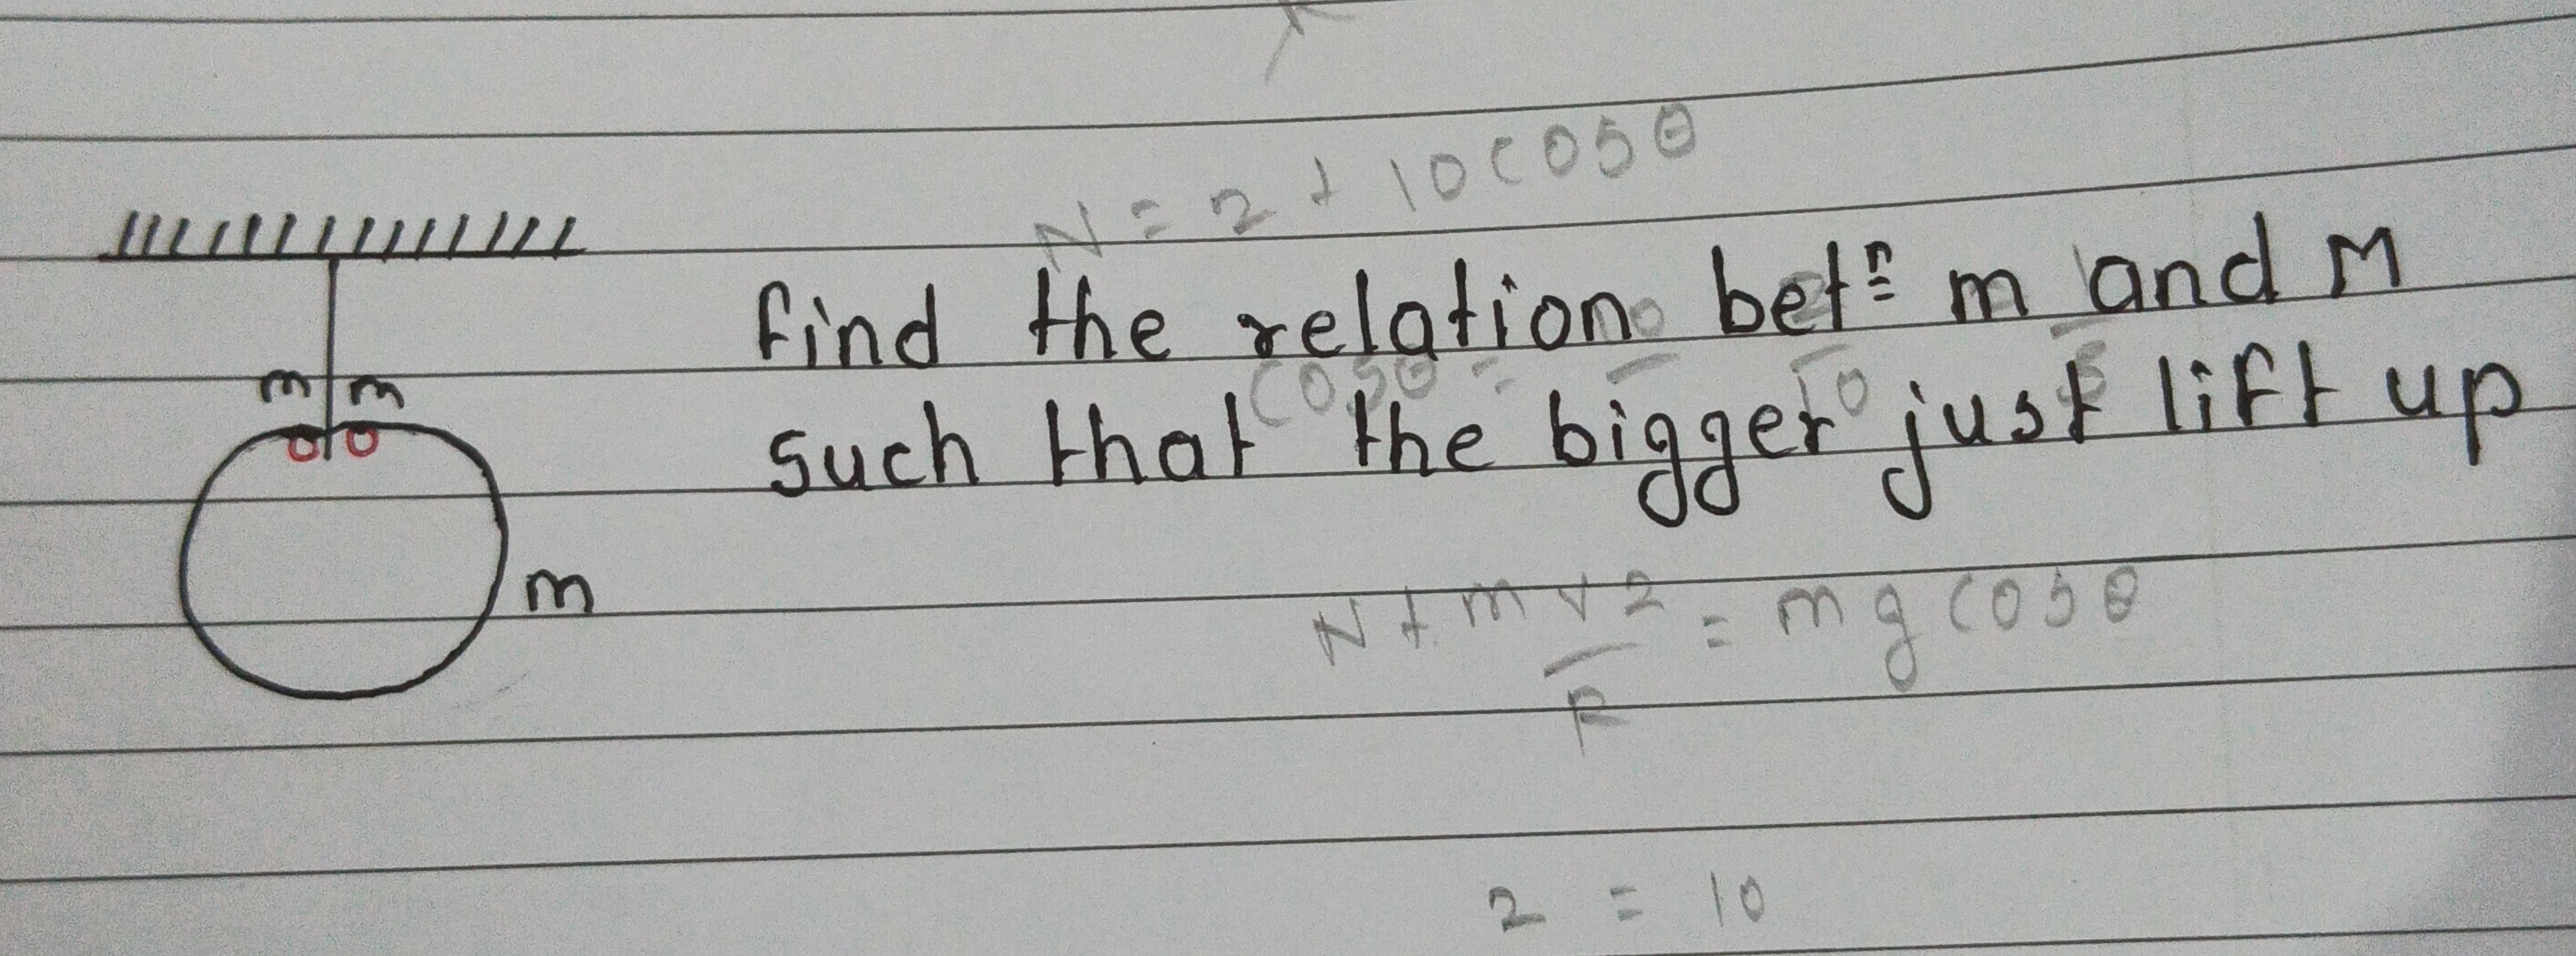 N = 2 + 10 cosθ
find the relation betⁿ m and M
m m
cosθ =
such that the bigger just lift up
m
N + mv2 = mg cosθ
2 = 10